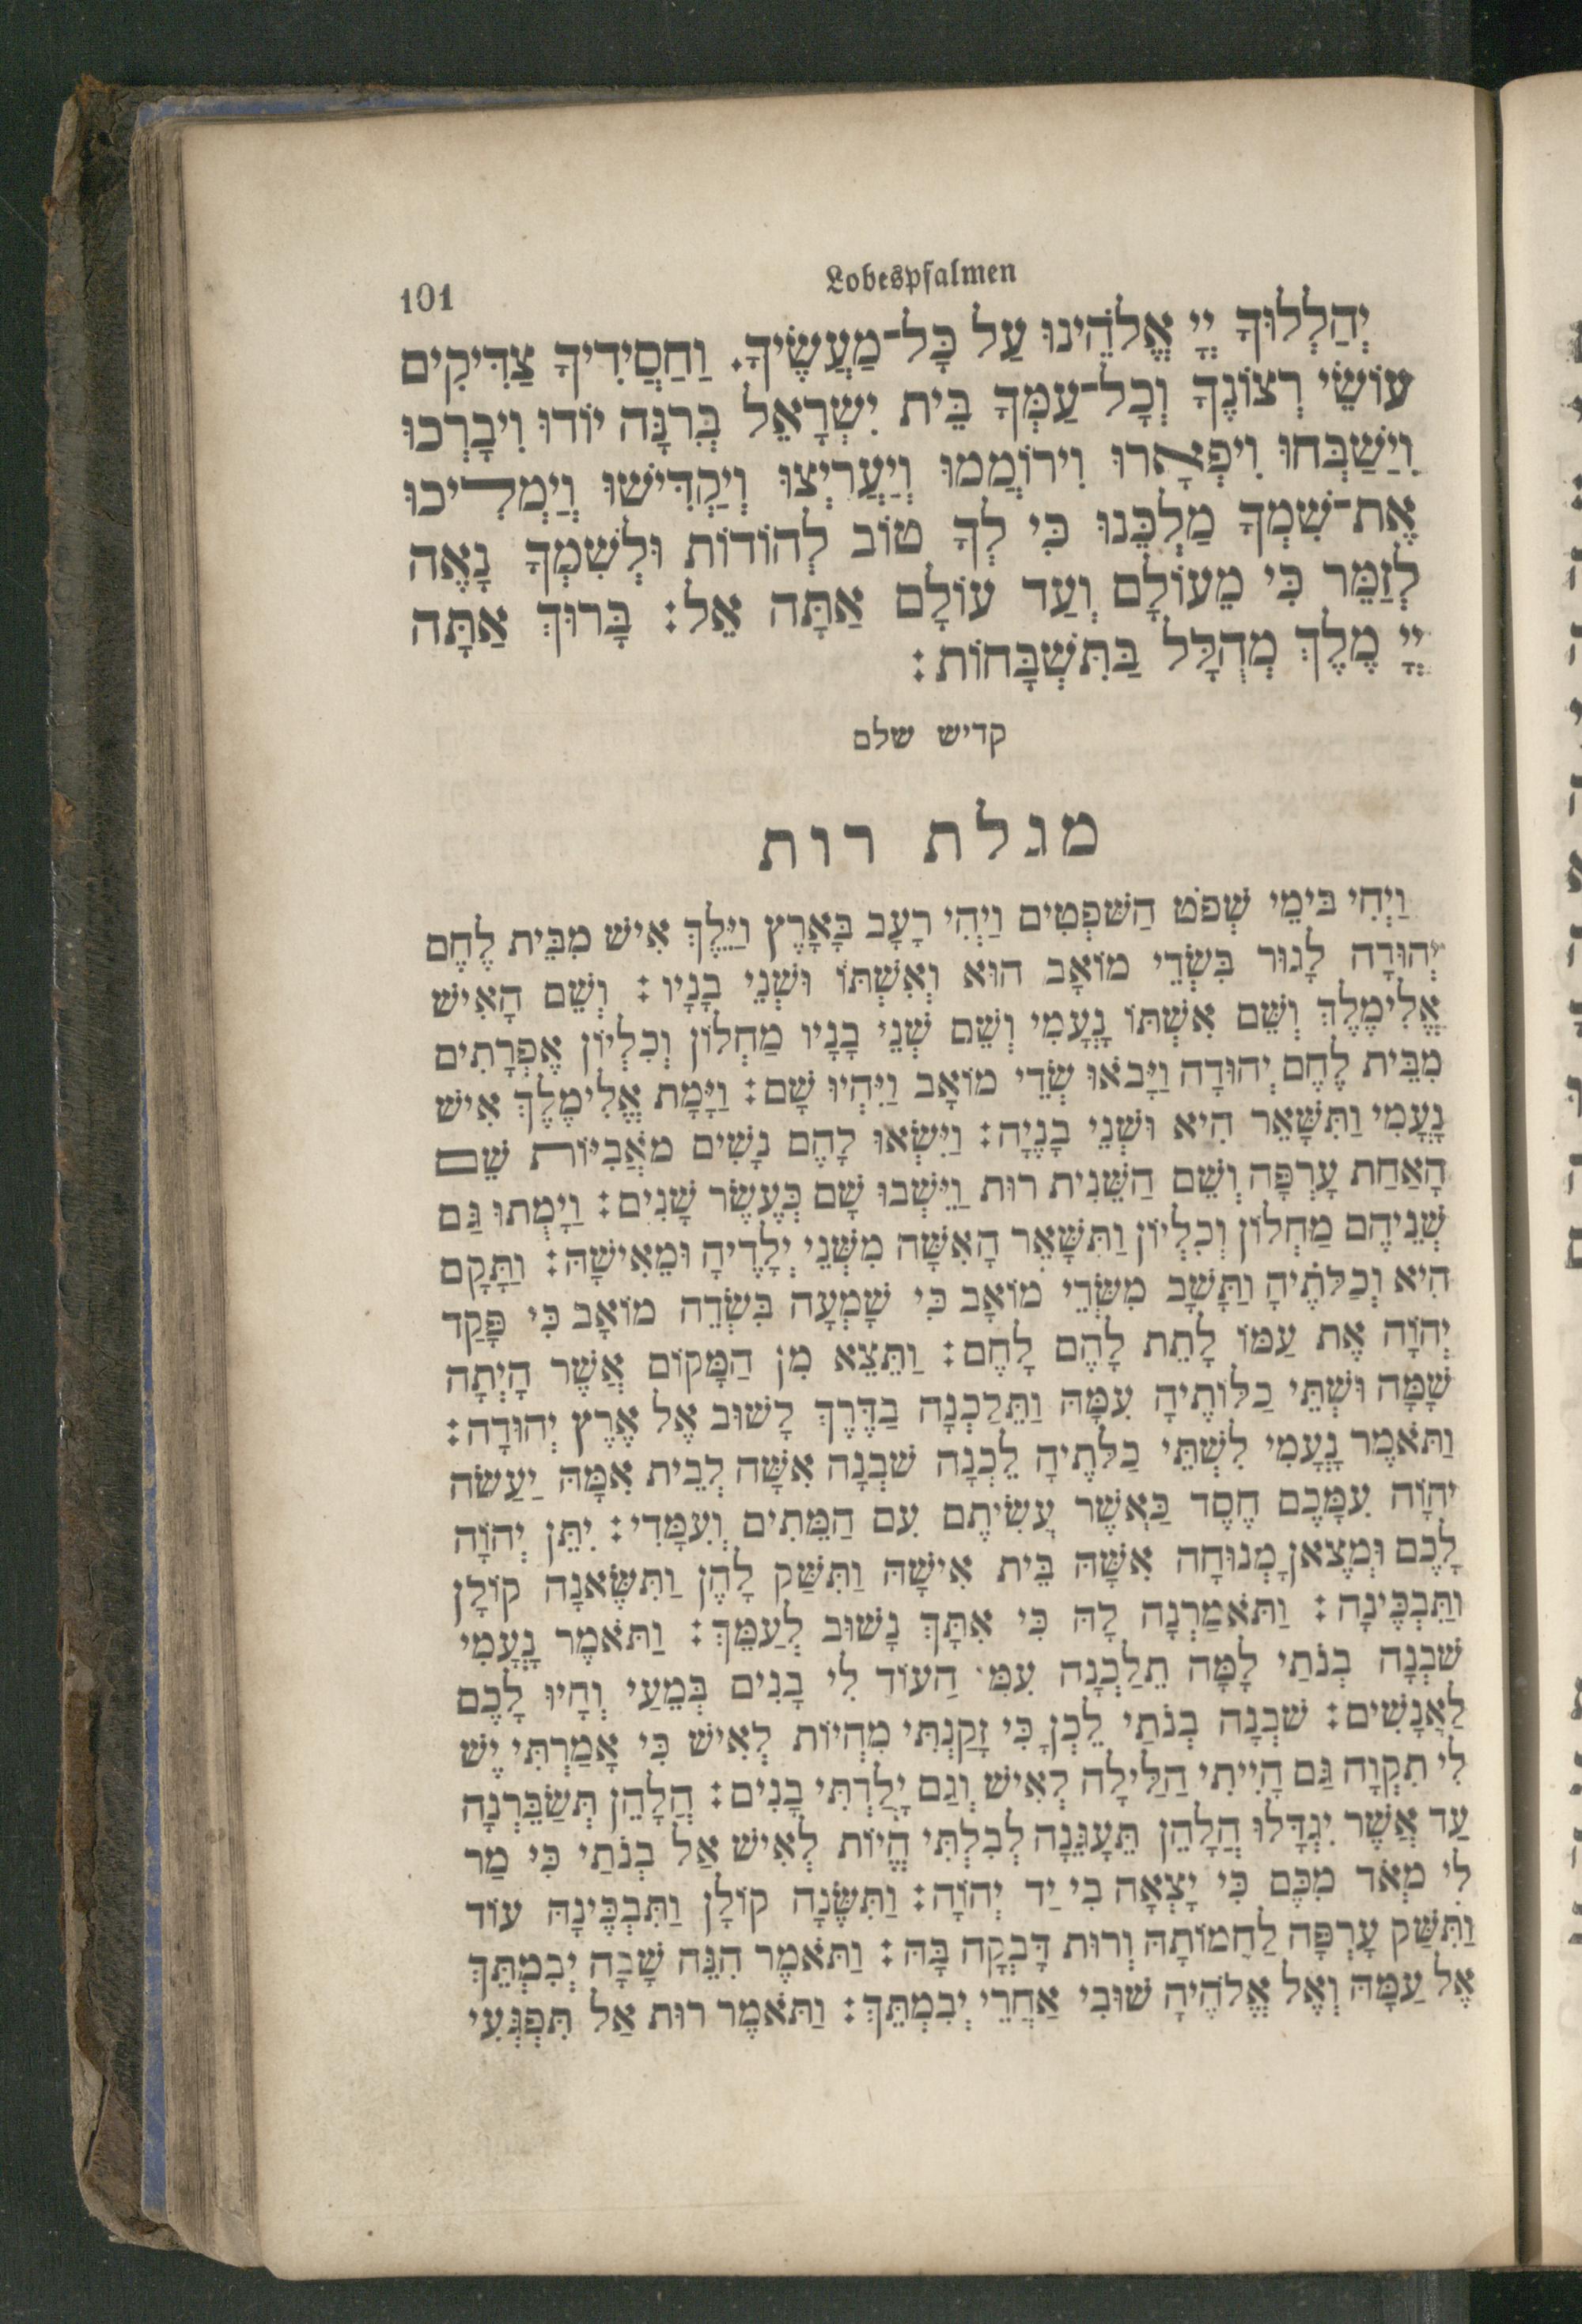 101
Lobespsalmen
יְהַלְלוּךָ יְיָ אֱלֹהֵינוּ עַל כָּל־מַעֲשֶׂיךָ. וַחֲסִידֶיךָ צַדִּיקִים
עוֹשֵׂי רְצוֹנֶךָ וְכָל־עַמְּךָ בֵּית יִשְׂרָאֵל בְּרִנָּה יוֹדוּ וִיבָרְכוּ
וִישַׁבְּחוּ וִיפָאֲרוּ וִירוֹמֲמוּ וְיַעֲרִיצוּ וְיַקְדִּישׁוּ וְיַמְלִיכוּ
אֶת־שִׁמְךָ מַלְכֵּנוּ כִּי לְךָ טוֹב לְהוֹדוֹת וּלְשִׁמְךָ נָאֶה
לְזַמֵּר כִּי מֵעוֹלָם וְעַד עוֹלָם אַתָּה אֵל: בָּרוּךְ אַתָּה
יְיָ מֶלֶךְ מְהֻלָּל בַּתִּשְׁבָּחוֹת:
קדיש שלם
מגלת רות
וַיְהִי בִּימֵי שְׁפֹט הַשֹּׁפְטִים וַיְהִי רָעָב בָּאָרֶץ וַיֵּלֶךְ אִישׁ מִבֵּית לֶחֶם
יְהוּדָה לָגוּר בִּשְׂדֵי מוֹאָב הוּא וְאִשְׁתּוֹ וּשְׁנֵי בָנָיו: וְשֵׁם הָאִישׁ
אֱלִימֶלֶךְ וְשֵׁם אִשְׁתּוֹ נָעֳמִי וְשֵׁם שְׁנֵי בָנָיו מַחְלוֹן וְכִלְיוֹן אֶפְרָתִים
מִבֵּית לֶחֶם יְהוּדָה וַיָּבֹאוּ שְׂדֵי מוֹאָב וַיִּהְיוּ שָׁם: וַיָּמָת אֱלִימֶלֶךְ אִישׁ
נָעֳמִי וַתִּשָּׁאֵר הִיא וּשְׁנֵי בָנֶיהָ: וַיִּשְׂאוּ לָהֶם נָשִׁים מֹאֲבִיּוֹת שֵׁם
הָאַחַת עָרְפָּה וְשֵׁם הַשֵּׁנִית רוּת וַיֵּשְׁבוּ שָׁם כְּעֶשֶׂר שָׁנִים: וַיָּמֻתוּ גַּם
שְׁנֵיהֶם מַחְלוֹן וְכִלְיוֹן וַתִּשָּׁאֵר הָאִשָּׁה מִשְּׁנֵי יְלָדֶיהָ וּמֵאִישָׁהּ: וַתָּקָם
הִיא וְכַלֹּתֶיהָ וַתָּשָׁב מִשְּׂדֵי מוֹאָב כִּי שָׁמְעָה בִּשְׂדֵה מוֹאָב כִּי פָּקַד
יְהוָֹה אֶת עַמּוֹ לָתֵת לָהֶם לָחֶם: וַתֵּצֵא מִן הַמָּקוֹם אֲשֶׁר הָיְתָה
שָׁמָּה וּשְׁתֵּי כַלּוֹתֶיהָ עִמָּהּ וַתֵּלַכְנָה בַדֶּרֶךְ לָשׁוּב אֶל אֶרֶץ יְהוּדָה:
וַתֹּאמֶר נָעֳמִי לִשְׁתֵּי כַלֹּתֶיהָ לֵכְנָה שֹׁבְנָה אִשָּׁה לְבֵית אִמָּהּ יַעֲשֹה
יְהוָֹה עִמָּכֶם חֶסֶד כַּאֲשֶׁר עֲשִׂיתֶם עִם הַמֵּתִים וְעִמָּדִי: יִתֵּן יְהוָֹה
לָכֶם וּמְצֶאןָ מְנוּחָה אִשָּׁה בֵּית אִישָׁהּ וַתִּשַּׁק לָהֶן וַתִּשֶּׂאנָה קוֹלָן
וַתִּבְכֶּינָה: וַתֹּאמַרְנָה לָּהּ כִּי אִתָּךְ נָשׁוּב לְעַמֵּךְ: וַתֹּאמֶר נָעֳמִי
שֹׁבְנָה בְנֹתַי לָמָּה תֵלַכְנָה עִמִּי הַעוֹד לִי בָנִים בְּמֵעַי וְהָיוּ לָכֶם
לַאֲנָשִׁים: שֹׁבְנָה בְנֹתַי לֵכְןָ כִּי זָקַנְתִּי מִהְיוֹת לְאִישׁ כִּי אָמַרְתִּי יֶשׁ
לִי תִקְוָה גַּם הָיִיתִי הַלַּיְלָה לְאִישׁ וְגַם יָלַדְתִּי בָנִים: הֲלָהֵן תְּשַׂבֵּרְנָה
עַד אֲשֶׁר יִגְדָּלוּ הֲלָהֵן תֵּעָגֵנָה לְבִלְתִּי הֱיוֹת לְאִישׁ אַל בְּנֹתַי כִּי מַר
לִי מְאֹד מִכֶּם כִּי יָצְאָה בִי יַד יְהוָֹה: וַתִּשֶּׂנָה קוֹלָן וַתִּבְכֶּינָה עוֹד
וַתִּשַּׁק עָרְפָּה לַחֲמוֹתָהּ וְרוּת דָּבְקָה בָּהּ: וַתֹּאמֶר הִנֵּה שָׁבָה יְבִמְתֵּךְ
אֶל עַמָּהּ וְאֶל אֱלֹהֶיהָ שׁוּבִי אַחֲרֵי יְבִמְתֵּךְ: וַתֹּאמֶר רוּת אַל תִּפְגְּעִי